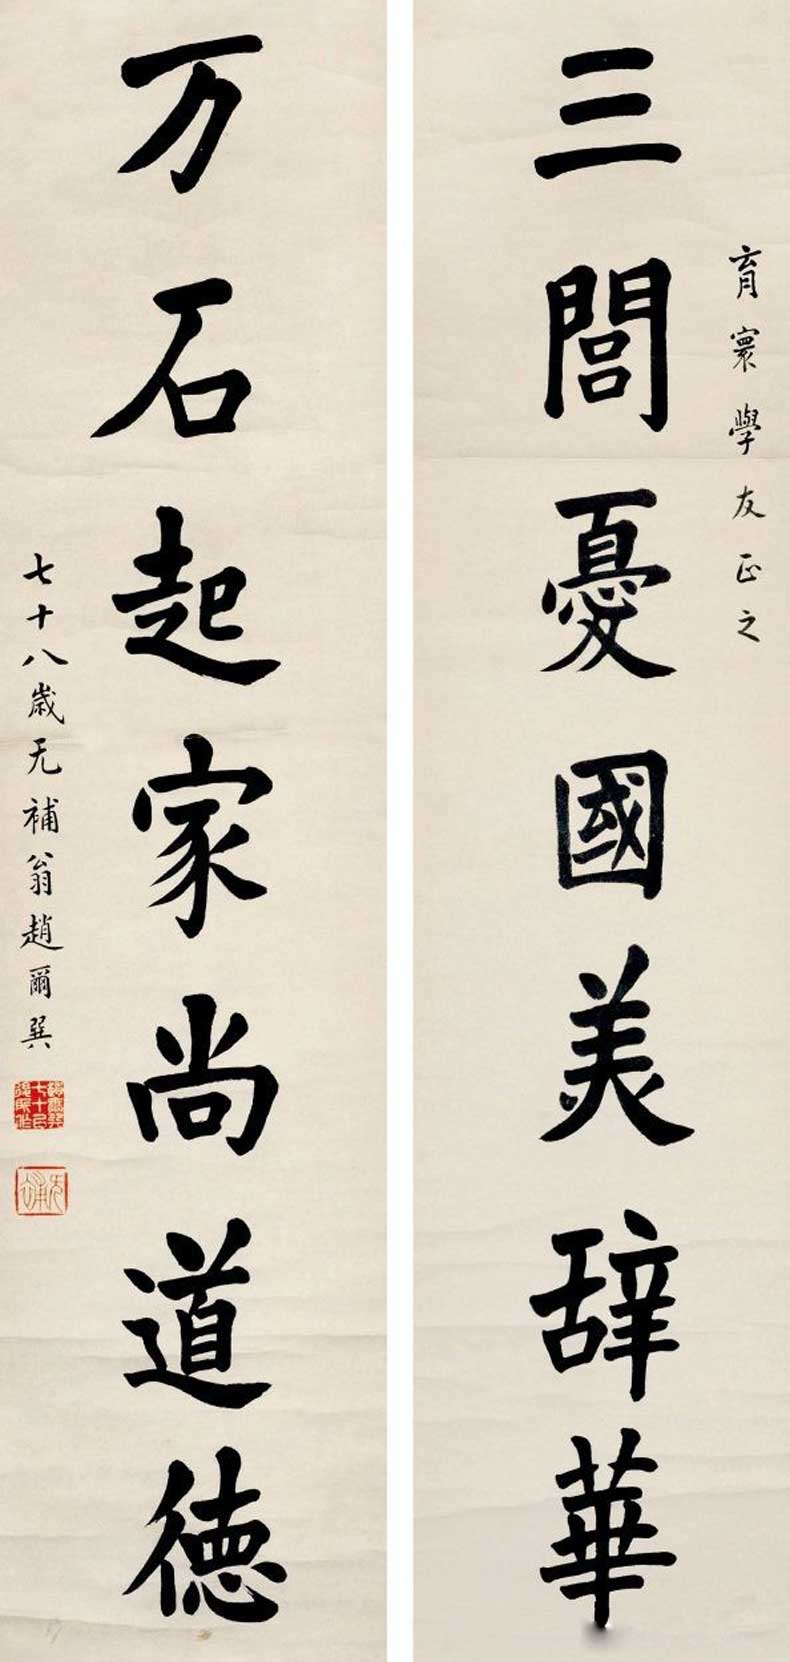 育寰學友正之
三閭憂國美辞華
万石起家尚道德
七十八歲无補翁趙爾巽